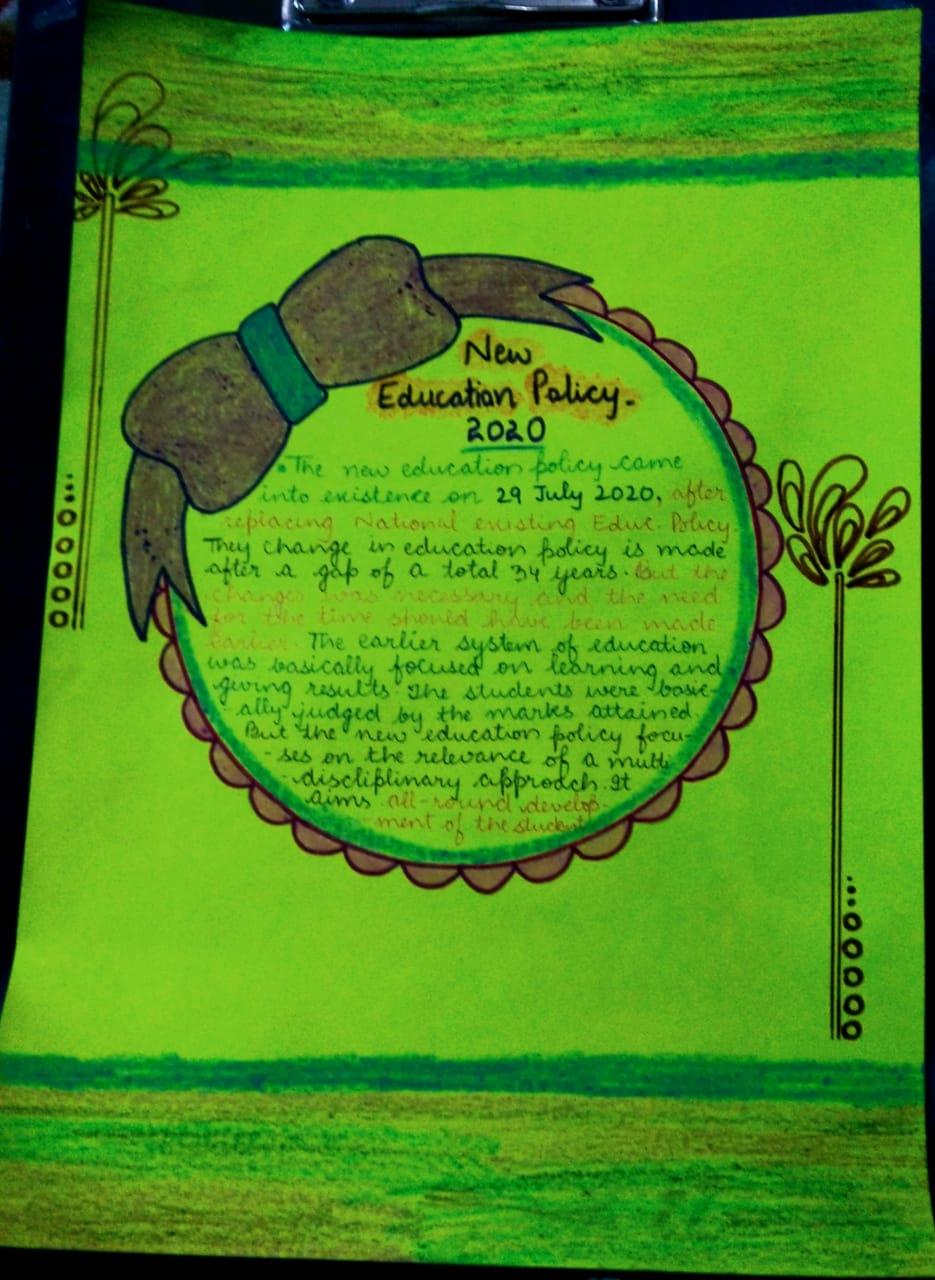 New
Education Policy.
2020
• The new education policy came
into existence on 29 July 2020, after
replacing National existing Educ. Policy.
They change in education policy is made
after a gap of a total 34 years. But the
changes was necessary and the need
for the time should have been made
earlier. The earlier system of education
was basically focused on learning and
giving results. The students were basic-
ally judged by the marks attained.
But the new education policy focu-
-ses on the relevance of a multi
-discliplinary approach. It
aims all-round develop-
ment of the student